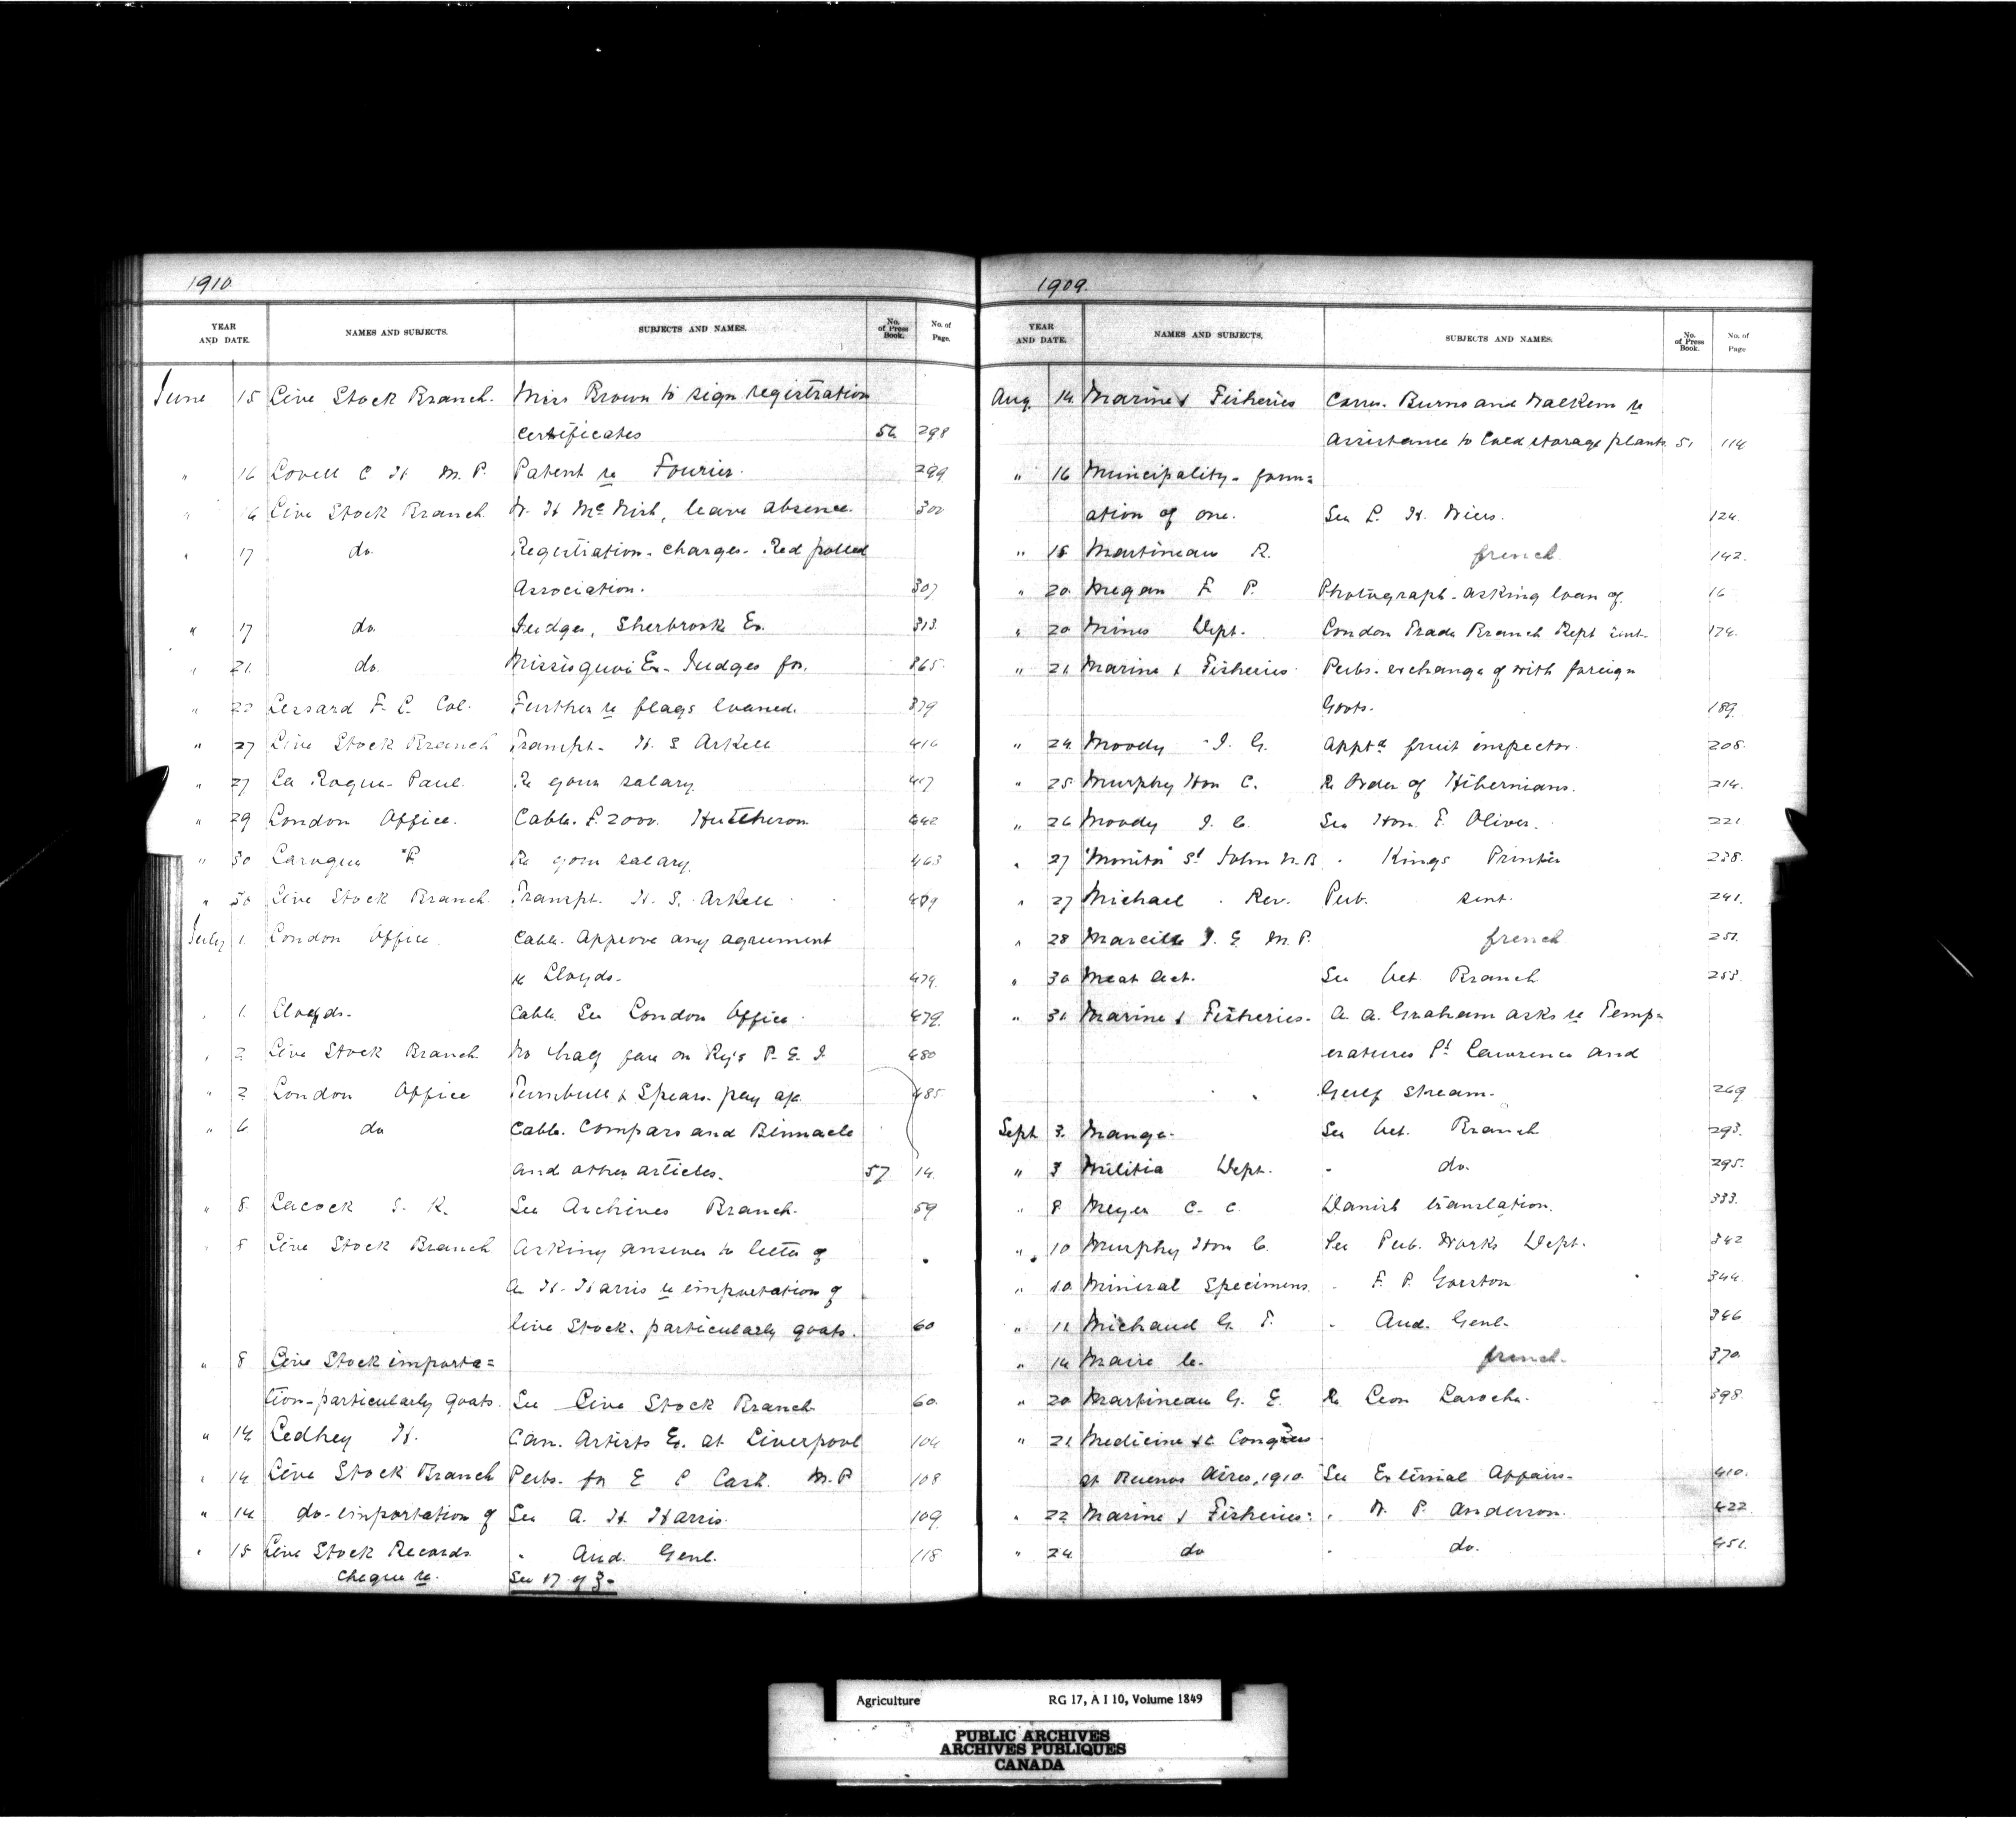 1910
YEAR AND DATE. NAMES AND SUBJECTS. SUBJECTS AND NAMES. No. of Press Book. No. of Page.
June 15 Live Stock Branch. Miss Brown to sign registration
certificates 56 298
" 16 Lovell C H M.P. Patent re Fourier. 299
" 16 Live Stock Branch leave absence. 302
" 17 do. Registration charges. Red polled
Association. 307
" 17 do. Judges, Sherbrooke Ex. 313.
" 21. do. Missisquoi Ex. Judges for. 365.
" Lessard F. L. Col. Further re flags loaned. 379
" 27 Live Stock Branch Transpt. H. S Arkell 416
" 27 La Roque Paul. Re your salary 417
" 29 London Office. Cable. £2000. 442
" 30 Laroque P. Re your salary. 463
" 30 Live Stock Branch. Transpt. H. S. Arkell
July 1. London Office. Cable. Approve any agreement
re Lloyds. 479.
" 1. Lloyds. Cable. See London Office. 479.
" 2 Live Stock Branch No half fare on Rys P. E. I. 480
" 2 London Office Turnbull & Spears. pay a/c. 485.
" 6 do Cable. Compass and Binnacle
and other articles. 57 14.
" 8. Lacock S. K. See Archives Branch. 59
" 8 Live Stock Branch Asking answer to letter of
A. H. Harris re importation of
live Stock. particularly goats. 60
" 8 Live Stock importa=
tion-particularly goats. See Live Stock Branch 60.
" 14 Ledhey H. Can. Artists Ex. at Liverpool 104
" 14. Live Stock Branch Pubs. for E C Cash. M.P 108
" 14 do-importation of See A. H. Harris. 109.
" 15 Live Stock Records " Aud. Genl. 118
Cheque re. See 17 of
1909.
YEAR AND DATE. NAMES AND SUBJECTS. SUBJECTS AND NAMES. No. of Press Book. No. of Page
Aug. 14. Marine & Fisheries Corres. Burns and Walkem re
assistance to Cold storage plants 51 114
" 16 Municipality - form=
ation of one. See L. H. 124.
" 18 Martineau R. french 142.
" 20. Megan F P. Photograph - asking loan of
" 20 Mines Dept. London Trade Branch Rept sent. 174.
" 21. Marine & Fisheries. Pubs. exchange of with foreign
Govts. 189.
" 24. Moody J. G. Apptd fruit inspector. 208.
" 25. Murphy Hon C. Re Order of Hibernians. 214.
" 26 Moody J. G. See Hon. F. Oliver. 221
" 27 "Monitor" St John N.B " Kings Printer 238.
" 27 Michael Rev. Pub. sent. 241.
" 28 Marcille J. E. M.P. french 251.
" 30 Meat Act. See Vet. Branch 253.
" 31. Marine & Fisheries. A. A. Graham asks re Temp=
eratures St Lawrence and
Gulf Stream. 269
Sept 3. Mange. See Vet. Branch 293.
" 3 Militia Dept. " do. 295.
" 8. Meyer C. C. Danish translation. 333.
" 10 Murphy Hon C. See Pub. Works Dept. 342
" 10. Mineral Specimens. " F. P. 344.
" 11 Michaud G. T. " Aud. Genl. 346
" 14 Maire C. french. 370.
" 20 Martineau G. E. Re Leon Laroche. 398.
" 21 Medicine &c Congress
at Buenos Aires, 1910. See External Affairs. 410.
" 22 Marine & Fisheries. " W. P. Anderson. 422
" 24. do " do. 451.
Agriculture RG 17, A I 10, Volume 1849
PUBLIC ARCHIVES
ARCHIVES PUBLIQUES
CANADA